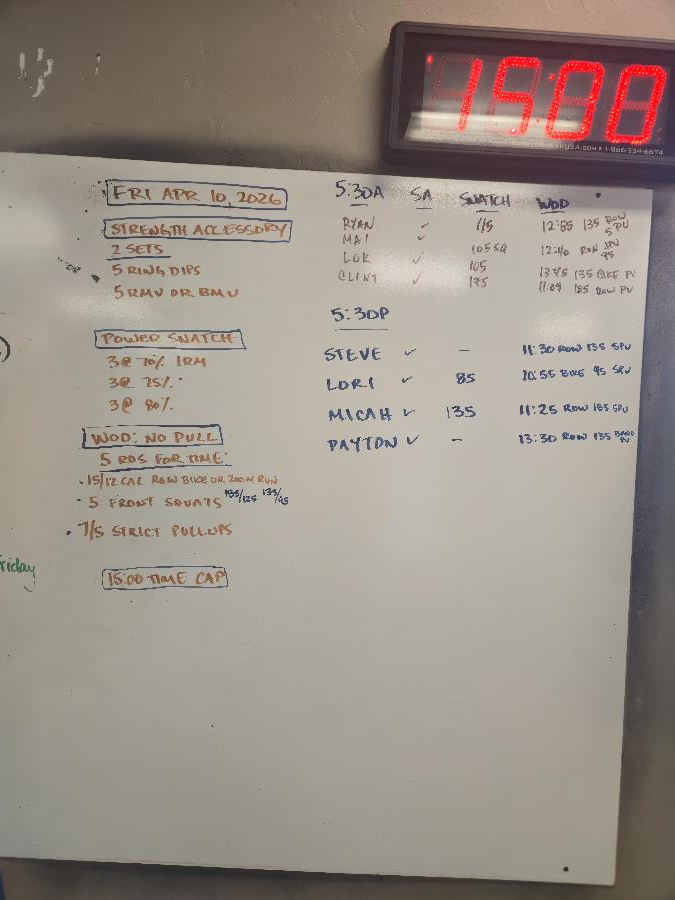 15:00
FRI APR 10, 2026
STRENGTH ACCESSORY
2 SETS
5 RING DIPS
5 RMU OR BMU
POWER SNATCH
3@ 70% 1RM
3@ 75%
3@ 80%
WOD: NO PULL
5 RDS FOR TIME:
15/12 CAL ROW BIKE OR 200M RUN
5 FRONT SQUATS 185/125 135/95
7/5 STRICT PULLUPS
15:00 TIME CAP
riday
5:30A SA SNATCH WOD
RYAN ✓ 115 12:55 135 ROW 5 PU
MAI ✓ 105 12:40 RUN 95
LOK ✓ 105 13:45 135 BIKE PU
CLINT ✓ 135 11:09 185 ROW PU
5:30P
STEVE ✓ - 11:30 ROW 135 SPU
LORI ✓ 85 10:55 BIKE 95 SPU
MICAH ✓ 135 11:25 ROW 185 SPU
PAYTON ✓ - 13:30 ROW 135 BAND PU